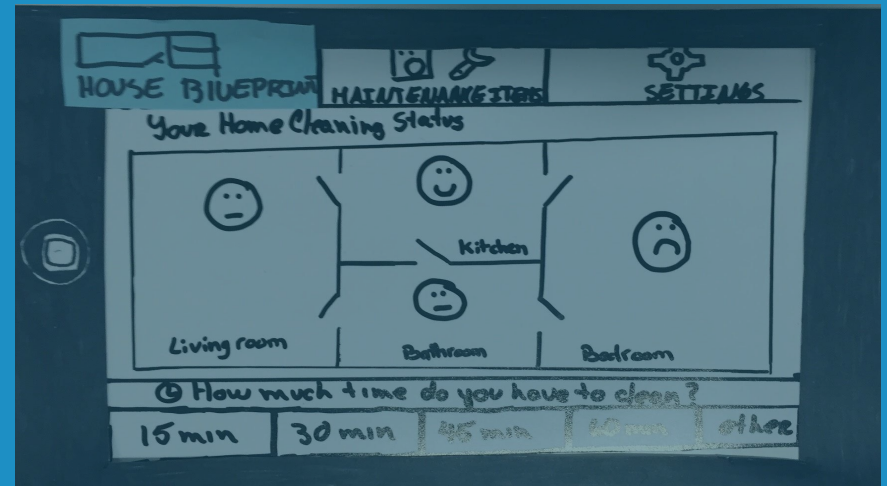 HOUSE BLUEPRINT
MAINTENANCE ITEMS
SETTINGS
Your Home Cleaning Status
Kitchen
Living room
Bathroom
Bedroom
How much time do you have to clean?
15 min
30 min
45 min
min
other